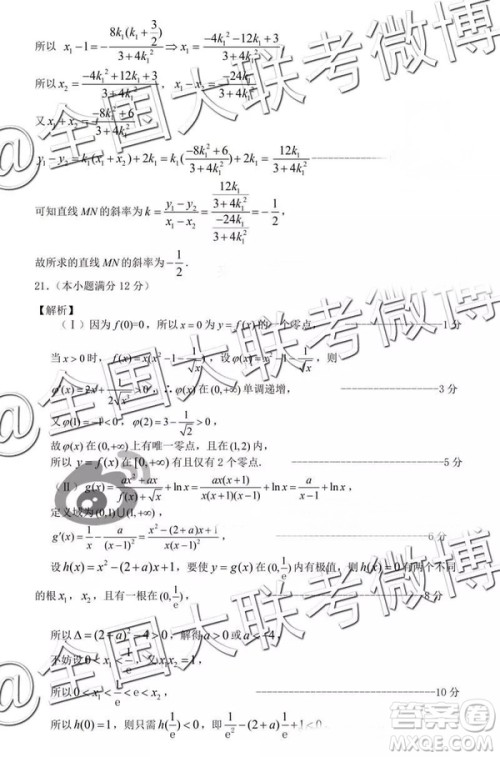 所以 x₁-1=-8k₁(k₁+3/2)/(3+4k₁²) ⇒ x₁=(-4k₁²-12k₁+3)/(3+4k₁²)
所以 x₂=(-4k₁²+12k₁+3)/(3+4k₁²), x₁-x₂=-24k₁/(3+4k₁²)
又 x₁+x₂=(-8k₁²+6)/(3+4k₁²)
y₁-y₂=k₁(x₁+x₂)+2k₁=k₁((-8k₁²+6)/(3+4k₁²))+2k₁=12k₁/(3+4k₁²)
可知直线 MN 的斜率为 k=(y₁-y₂)/(x₁-x₂)=(12k₁/(3+4k₁²))/(-24k₁/(3+4k₁²))=-1/2,
故所求的直线 MN 的斜率为-1/2.
21.(本小题满分 12 分)
【解析】
(Ⅰ)因为 f(0)=0, 所以 x=0 为 y=f(x)的一个零点, 1 分
当 x>0 时, f(x)=x(x²-1-1/√x), 设 φ(x)=x²-1-1/√x, 则
φ'(x)=2x+1/(2√x³)>0, ∴φ(x)在(0,+∞)单调递增, 3 分
又 φ(1)=-1<0, φ(2)=3-1/√2>0,
故 φ(x)在(0,+∞)上有唯一零点, 且在(1,2)内,
所以 y=f(x)在[0,+∞)有且仅有 2 个零点. 5 分
(Ⅱ) g(x)=(ax²+ax)/(f(x)+√x)+ln x=ax(x+1)/(x(x+1)(x-1))+ln x=a/(x-1)+ln x,
定义域为(0,1)∪(1,+∞),
g'(x)=1/x-a/(x-1)²=(x²-(2+a)x+1)/(x(x-1)²) 6 分
设 h(x)=x²-(2+a)x+1, 要使 y=g(x)在(0,1/e)内有极值, 则 h(x)=0 有两个不同
的根 x₁, x₂, 且有一根在(0,1/e), 8 分
所以 Δ=(2+a)²-4>0, 解得 a>0 或 a<-4,
不妨设 0<x₁<1/e, 又 x₁x₂=1,
所以 0<x₁<1/e<e<x₂, 10 分
所以 h(0)=1, 则只需 h(1/e)<0, 即 1/e²-(2+a)1/e+1<0,
@全国大联考微博
@全国大联考微博